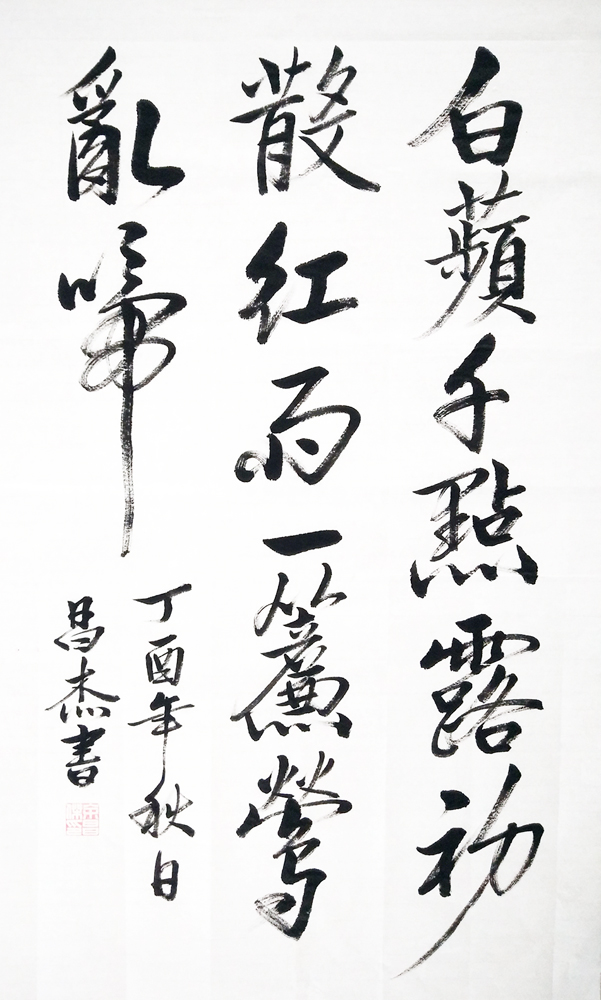 白蘋千點露初
散紅雨一簾鶯
亂啼
丁酉年秋日
昌杰書